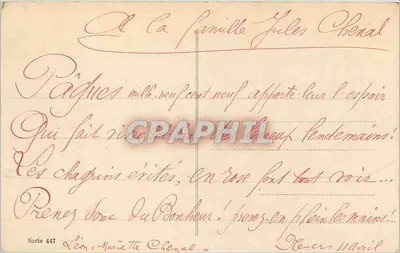 A la famille Jules Chenal
Pâques mille neuf cent neuf apporte leur l'espoir
Qui fait de heureux lendemains!
Les chagrins évités, en rose font tout voir...
Prenez donc du Bonheur! prenez-en plein les mains!
CPAPHIL
Serie 447
Léon, Mariette Chenal
11 avril